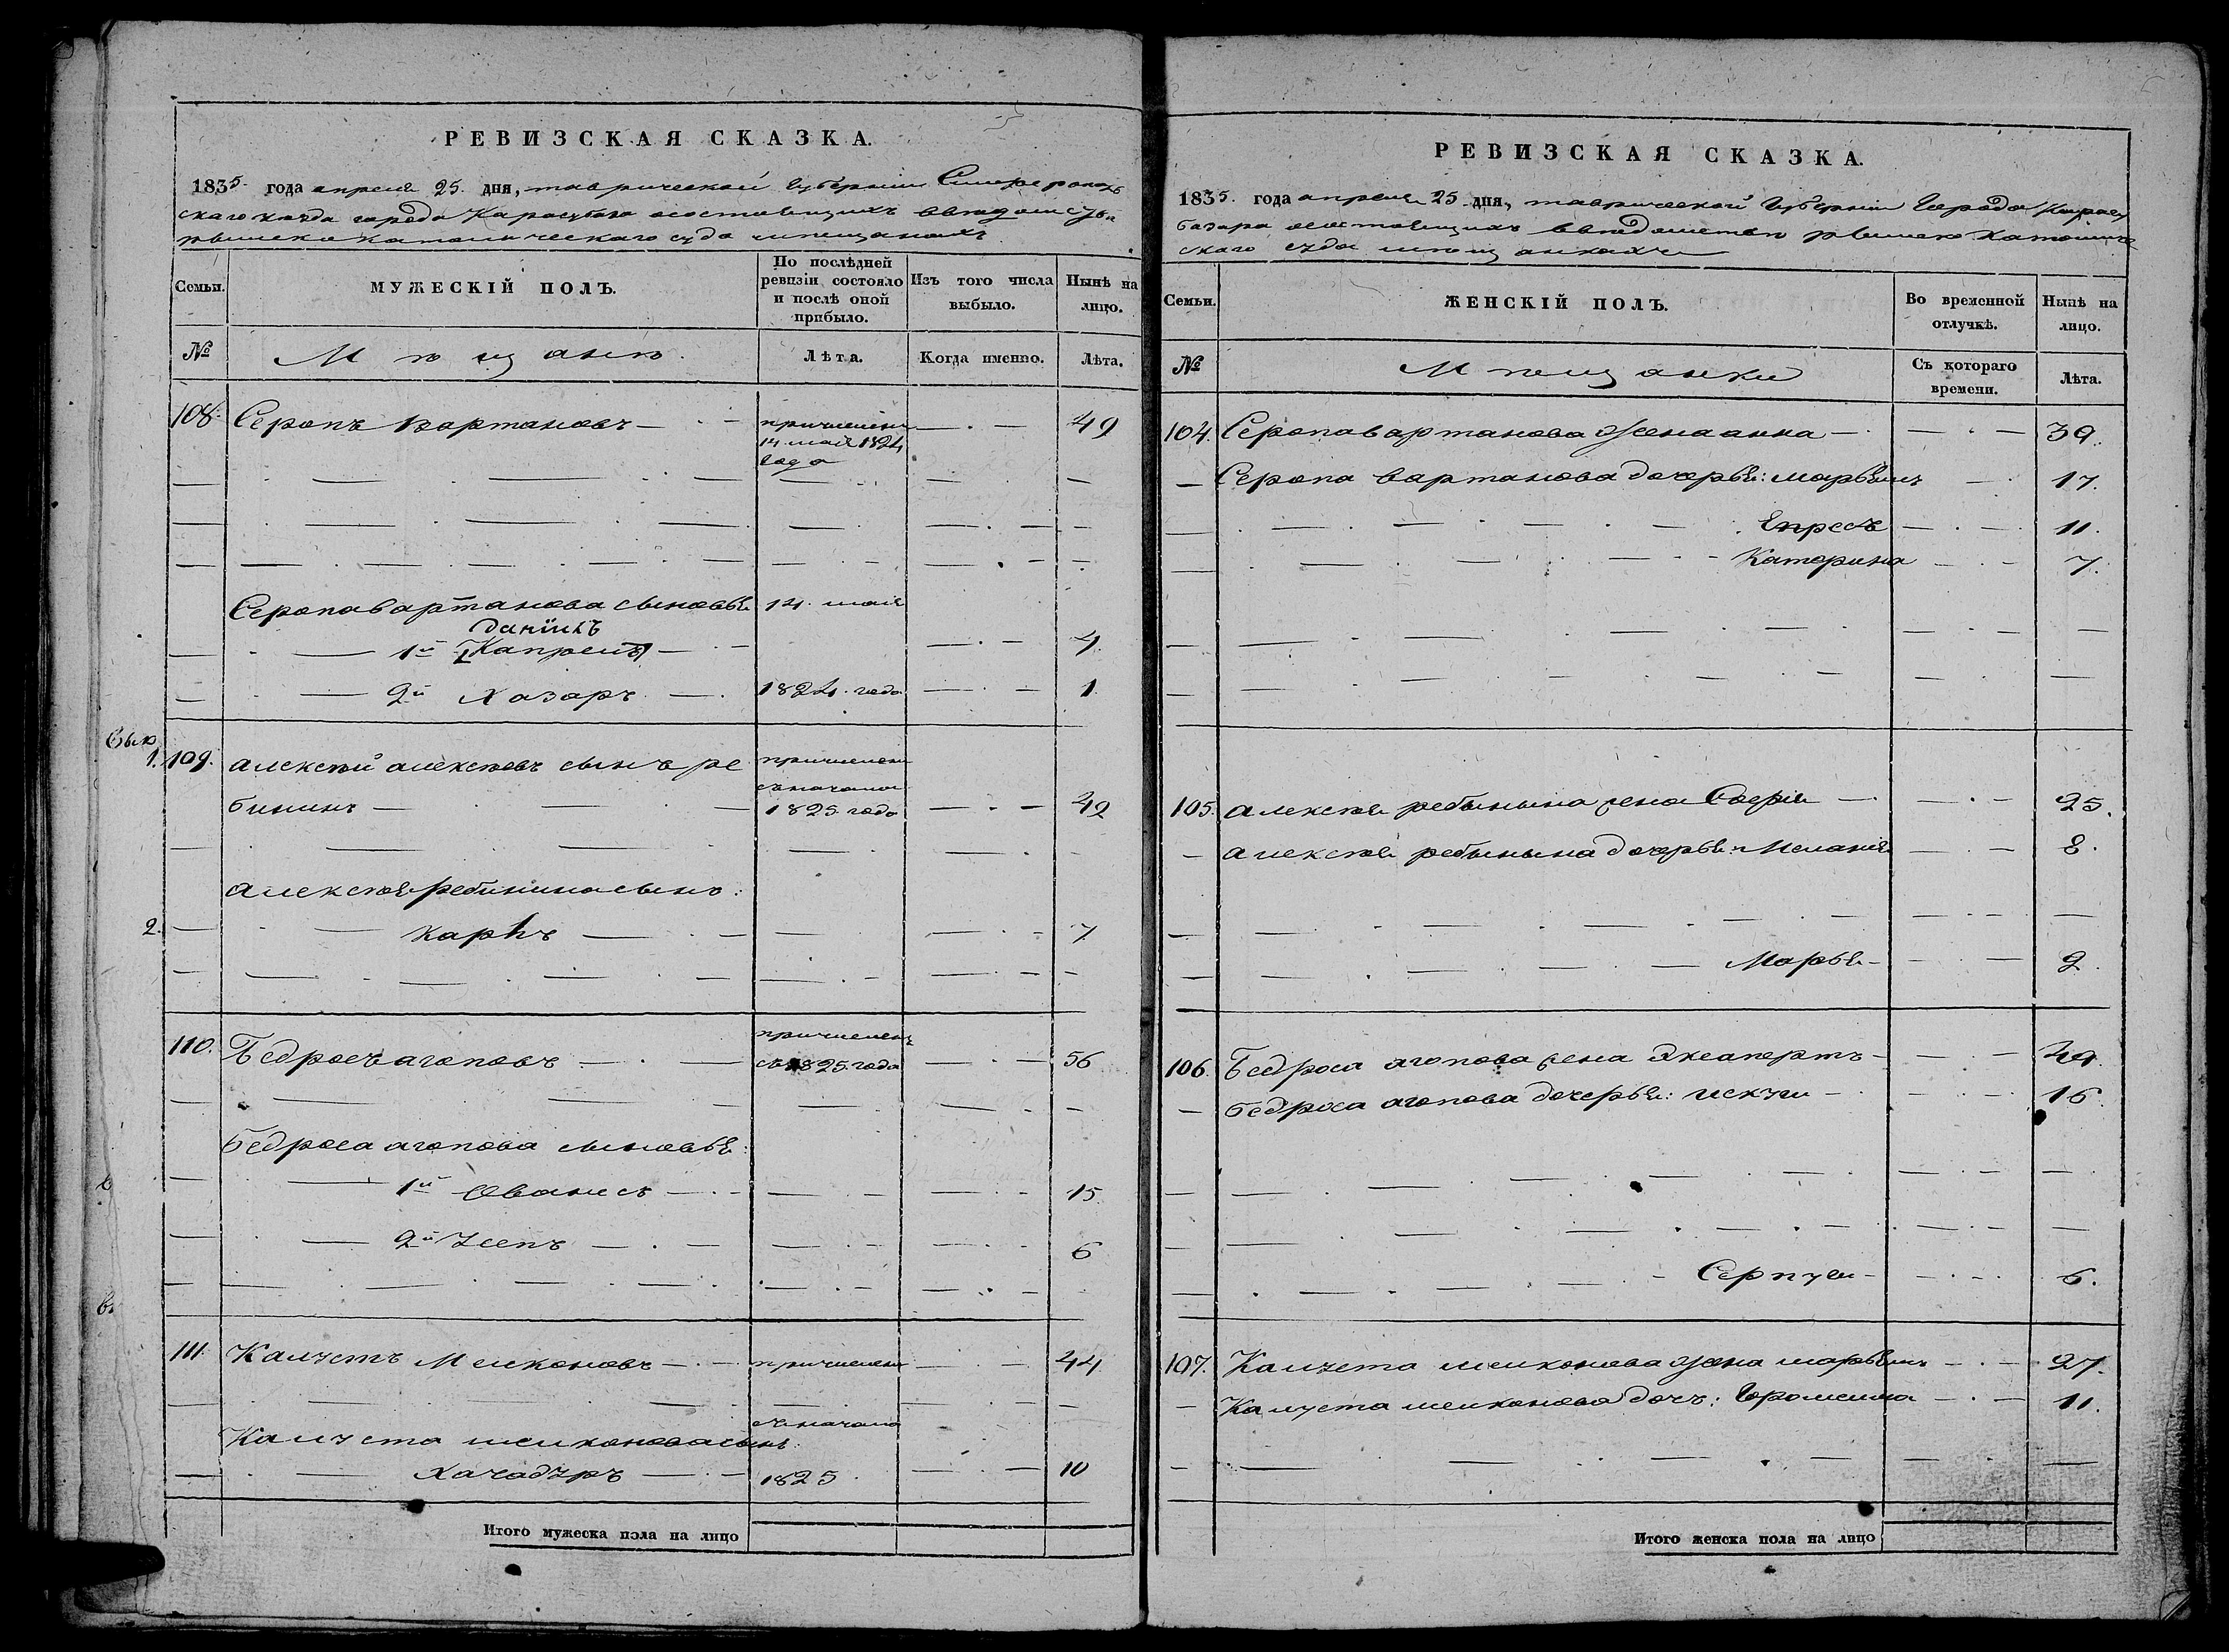 РЕВИЗСКАЯ СКАЗКА.
1835. года апреля 25. дня, таврической Губернии Симферополь
скаго уезда города Карасубаза состоящихъ
римско католическаго суда мещанахъ.
Семьи.
МУЖЕСКІЙ ПОЛЪ.
По послѣдней ревизіи состояло и послѣ оной прибыло.
Изъ того числа выбыло.
Нынѣ на лицо.
№
Мѣщане.
Лѣта.
Когда именно.
Лѣта.
108. Серопъ Вартановъ причисленъ 49
14 мая 1824
года
Серопа Вартанова сыновья 14. мая
Данiилъ
1й [Капрелъ] 4.
2й Хазаръ 1824. года 1.
1. 109. Алексѣй алексѣевъ сынъ ре причисленъ
съ начала
бининъ 1825. года 42
Алексѣя Ребинина сынъ:
2. Карпъ 7
110. Бедросъ агоповъ причисленъ
съ 1825. года 56
Бедроса агопова сыновья:
1й Ованесъ 15.
2й Усепъ 6
111. Калустъ Мелконовъ причисленъ 44
съ начала
Калуста мелконова сынъ:
Хачадуръ 1825. 10
Итого мужеска пола на лицо
РЕВИЗСКАЯ СКАЗКА.
1835. года апреля 25. дня, таврической Губернiи Города Карасу
базара состоящихъ въ ведомстве римско католиче
скаго суда мещанкахъ
Семьи.
ЖЕНСКІЙ ПОЛЪ.
Во временной отлучкѣ.
Нынѣ на лицо.
№
Мѣщанки
Съ котораго времени.
Лѣта.
104. Серопа вартанова жена анна 39.
Серопа вартанова дочерья: марьямъ 17.
Епресъ 11.
Катерина 7.
105. Алексѣя ребынына жена Софiя 25.
Алексѣя ребынына дочерья: Меланiя 8.
Марья 2.
106. Бедроса агопова жена 49
Бедроса агопова дочерья: искуи 16.
Серпуи 6.
107. Калуста мелконова жена марьямъ 27.
Калуста мелконова дочь: 11.
Итого женска пола на лицо